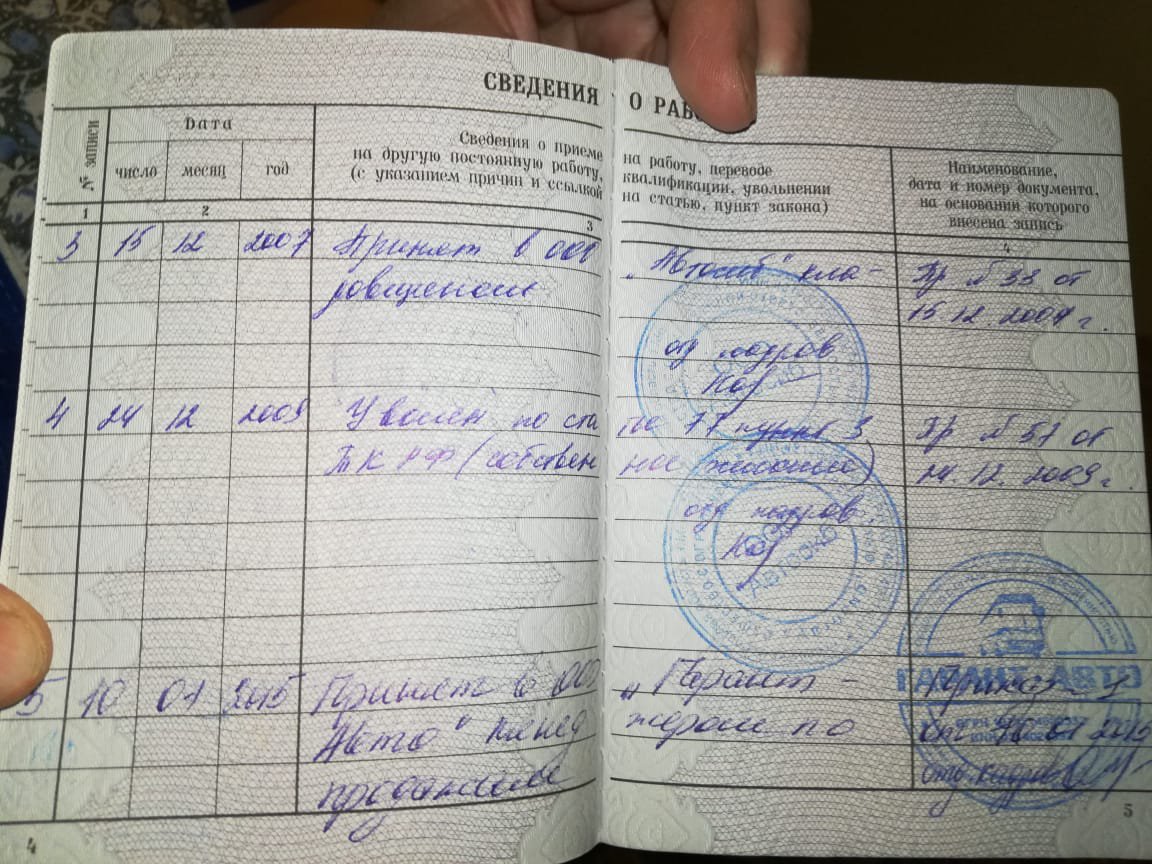 СВЕДЕНИЯ О РАБ
№ записи
Дата
число месяц год
Сведения о приеме на работу, переводе
на другую постоянную работу, квалификации, увольнении
(с указанием причин и ссылкой на статью, пункт закона)
Наименование,
дата и номер документа,
на основании которого
внесена запись
1 2 3 4
3 15 12 2007 Принят в ООО кла- Пр №33 от
довщиком 15.12.2007 г.
отд кадров
4 24 12 2009 Уволен по ста 77 пункт 3 Пр №57 от
ТК РФ (собствен ное желание) 24.12.2009 г.
отд кадров
АВТОЭКО
5 10 01 2015 Принят в ООО "Гарант - Приказ
Авто" менед жером по от 2015
продажам отд. кадров
ГАРАНТ АВТО
4
5